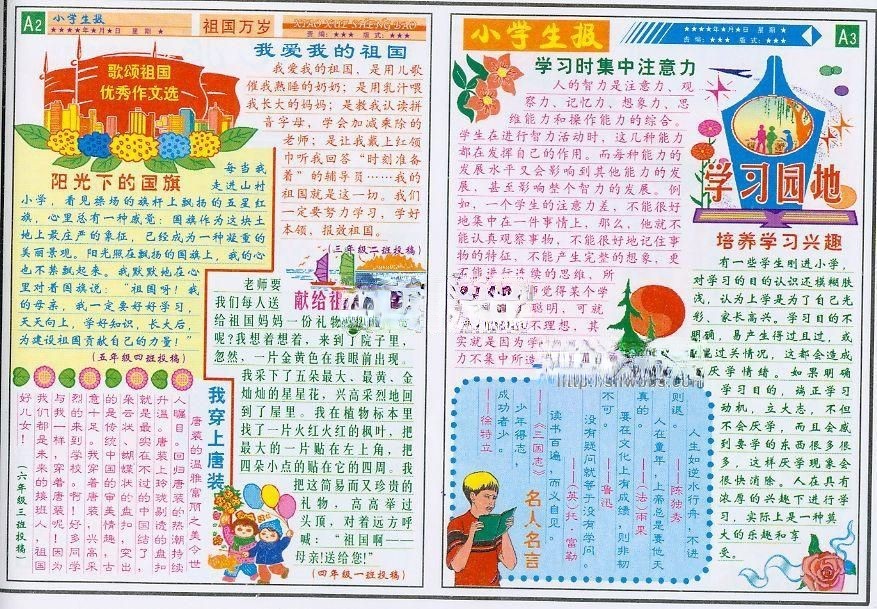 A2
小学生报
★★★★年★月★日 星期★
祖国万岁
XIAO XUE SHENG BAO
责编：★★★ 版式：★★★
歌颂祖国
优秀作文选
我爱我的祖国
我爱我的祖国，是用儿歌
催我熟睡的奶奶；是用乳汁喂
我长大的妈妈；是教我认读拼
音字母，学会加减乘除的
老师；是让我戴上红领
巾听我回答“时刻准备
着”的辅导员……我的
祖国就是这一切。我们
一定要努力学习，学好
本领，报效祖国。
（三年级二班投稿）
阳光下的国旗
每当我
走进山村
小学，看见操场的旗杆上飘扬的五星红
旗，心里总有一种感觉：国旗作为这块土
地上最庄严的象征，已经成为一种凝重的
美丽景观。阳光照在飘扬的国旗上，我的心
也不禁飘起来。我默默地在心
里对着国旗说：“祖国呀！我
的母亲，我一定要好好学习，
天天向上，学好知识，长大后
为建设祖国贡献自己的力量！”
（五年级四班投稿）
献给祖
老师要
我们每人送
给祖国妈妈一份礼物
呢?我想着想着，来到了院子里，
忽然，一片金黄色在我眼前出现，
我采下了五朵最大、最黄、金
灿灿的星星花，兴高采烈地回
到了屋里。我在植物标本里
找了一片火红火红的枫叶，把
最大的一片贴在左上角，把
四朵小点的贴在它的四周。我
把这简易而又珍贵的
礼物，高高举过
头顶，对着远方呼
喊：“祖国啊——
母亲！送给您！”
（四年级一班投稿）
我穿上唐装
唐装的温雅富丽之美令世
人瞩目。回归唐装的热潮持续
升温。唐装上玲珑剔透的盘扣
就是最实在不过的中国结了，
朵云状、蝴蝶状的盘扣，突出
的是传统的中国审美情趣，古
意十足。学校着唐装，兴高采
烈的来到学校。啊！好多同学
与我一样，穿着唐装呢！因为
我们都是未来的接班人，祖国
好儿女！
（六年级三班投稿）
小学生报
★★★★年★月★日 星期★
责编：★★★ 版式：★★★
A3
学习时集中注意力
人的智力是注意力、观
察力、记忆力、想象力、思
维能力和操作能力的综合。
学生在进行智力活动时，这几种能力
都在发挥自己的作用。而每种能力的
发展水平又会影响到其他能力的发
展、甚至影响整个智力的发展。例
如，一个学生的注意力差，不能很好
地集中在一件事情上，那么，他就不
能认真观察事物，不能很好地记住事
物的特征，不能产生完整的想象，更
不能进行连续的思维，所
师觉得某个学
聪明，可就
不理想，其
实就是因为学
力不集中所造
学习园地
培养学习兴趣
有一些学生刚进小学，
对学习的目的认识还模糊肤
浅，认为上学是为了自己光
彩、家长高兴。学习目的不
明确，易产生得过且过，或
过关情况，这都会造成
厌学情绪。如果明确
学习目的，端正学习
动机，立大志，不但
不会厌学，而且会感
到要学的东西很多很
多，这样厌学现象会
很快消除。人在具有
浓厚的兴趣下进行学
习，实际上是一种莫
大的乐趣和享
受。
人生如逆水行舟，不进
则退。
——陈独秀
人在童年，上帝总是要他天
真的。
——（法）雨果
要在文化上有成绩，则非韧
不可。
——鲁迅
没有疑问就等于没有学问。
——（英）托·富勒
读书百遍，而义自见。
——《三国志》
少年得志，
成功者少。
——徐特立
名人名言